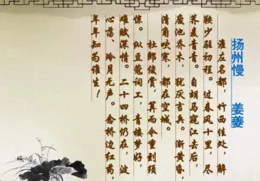 扬州慢 姜夔
淮左名都，竹西佳处，解
鞍少驻初程。过春风十里，尽
荠麦青青。自胡马窥江去后，
废池乔木，犹厌言兵。渐黄昏，
清角吹寒，都在空城。
杜郎俊赏，算而今重到须
惊。纵豆蔻词工，青楼梦好，
难赋深情。二十四桥仍在，波
心荡、冷月无声。念桥边红药，
年年知为谁生。